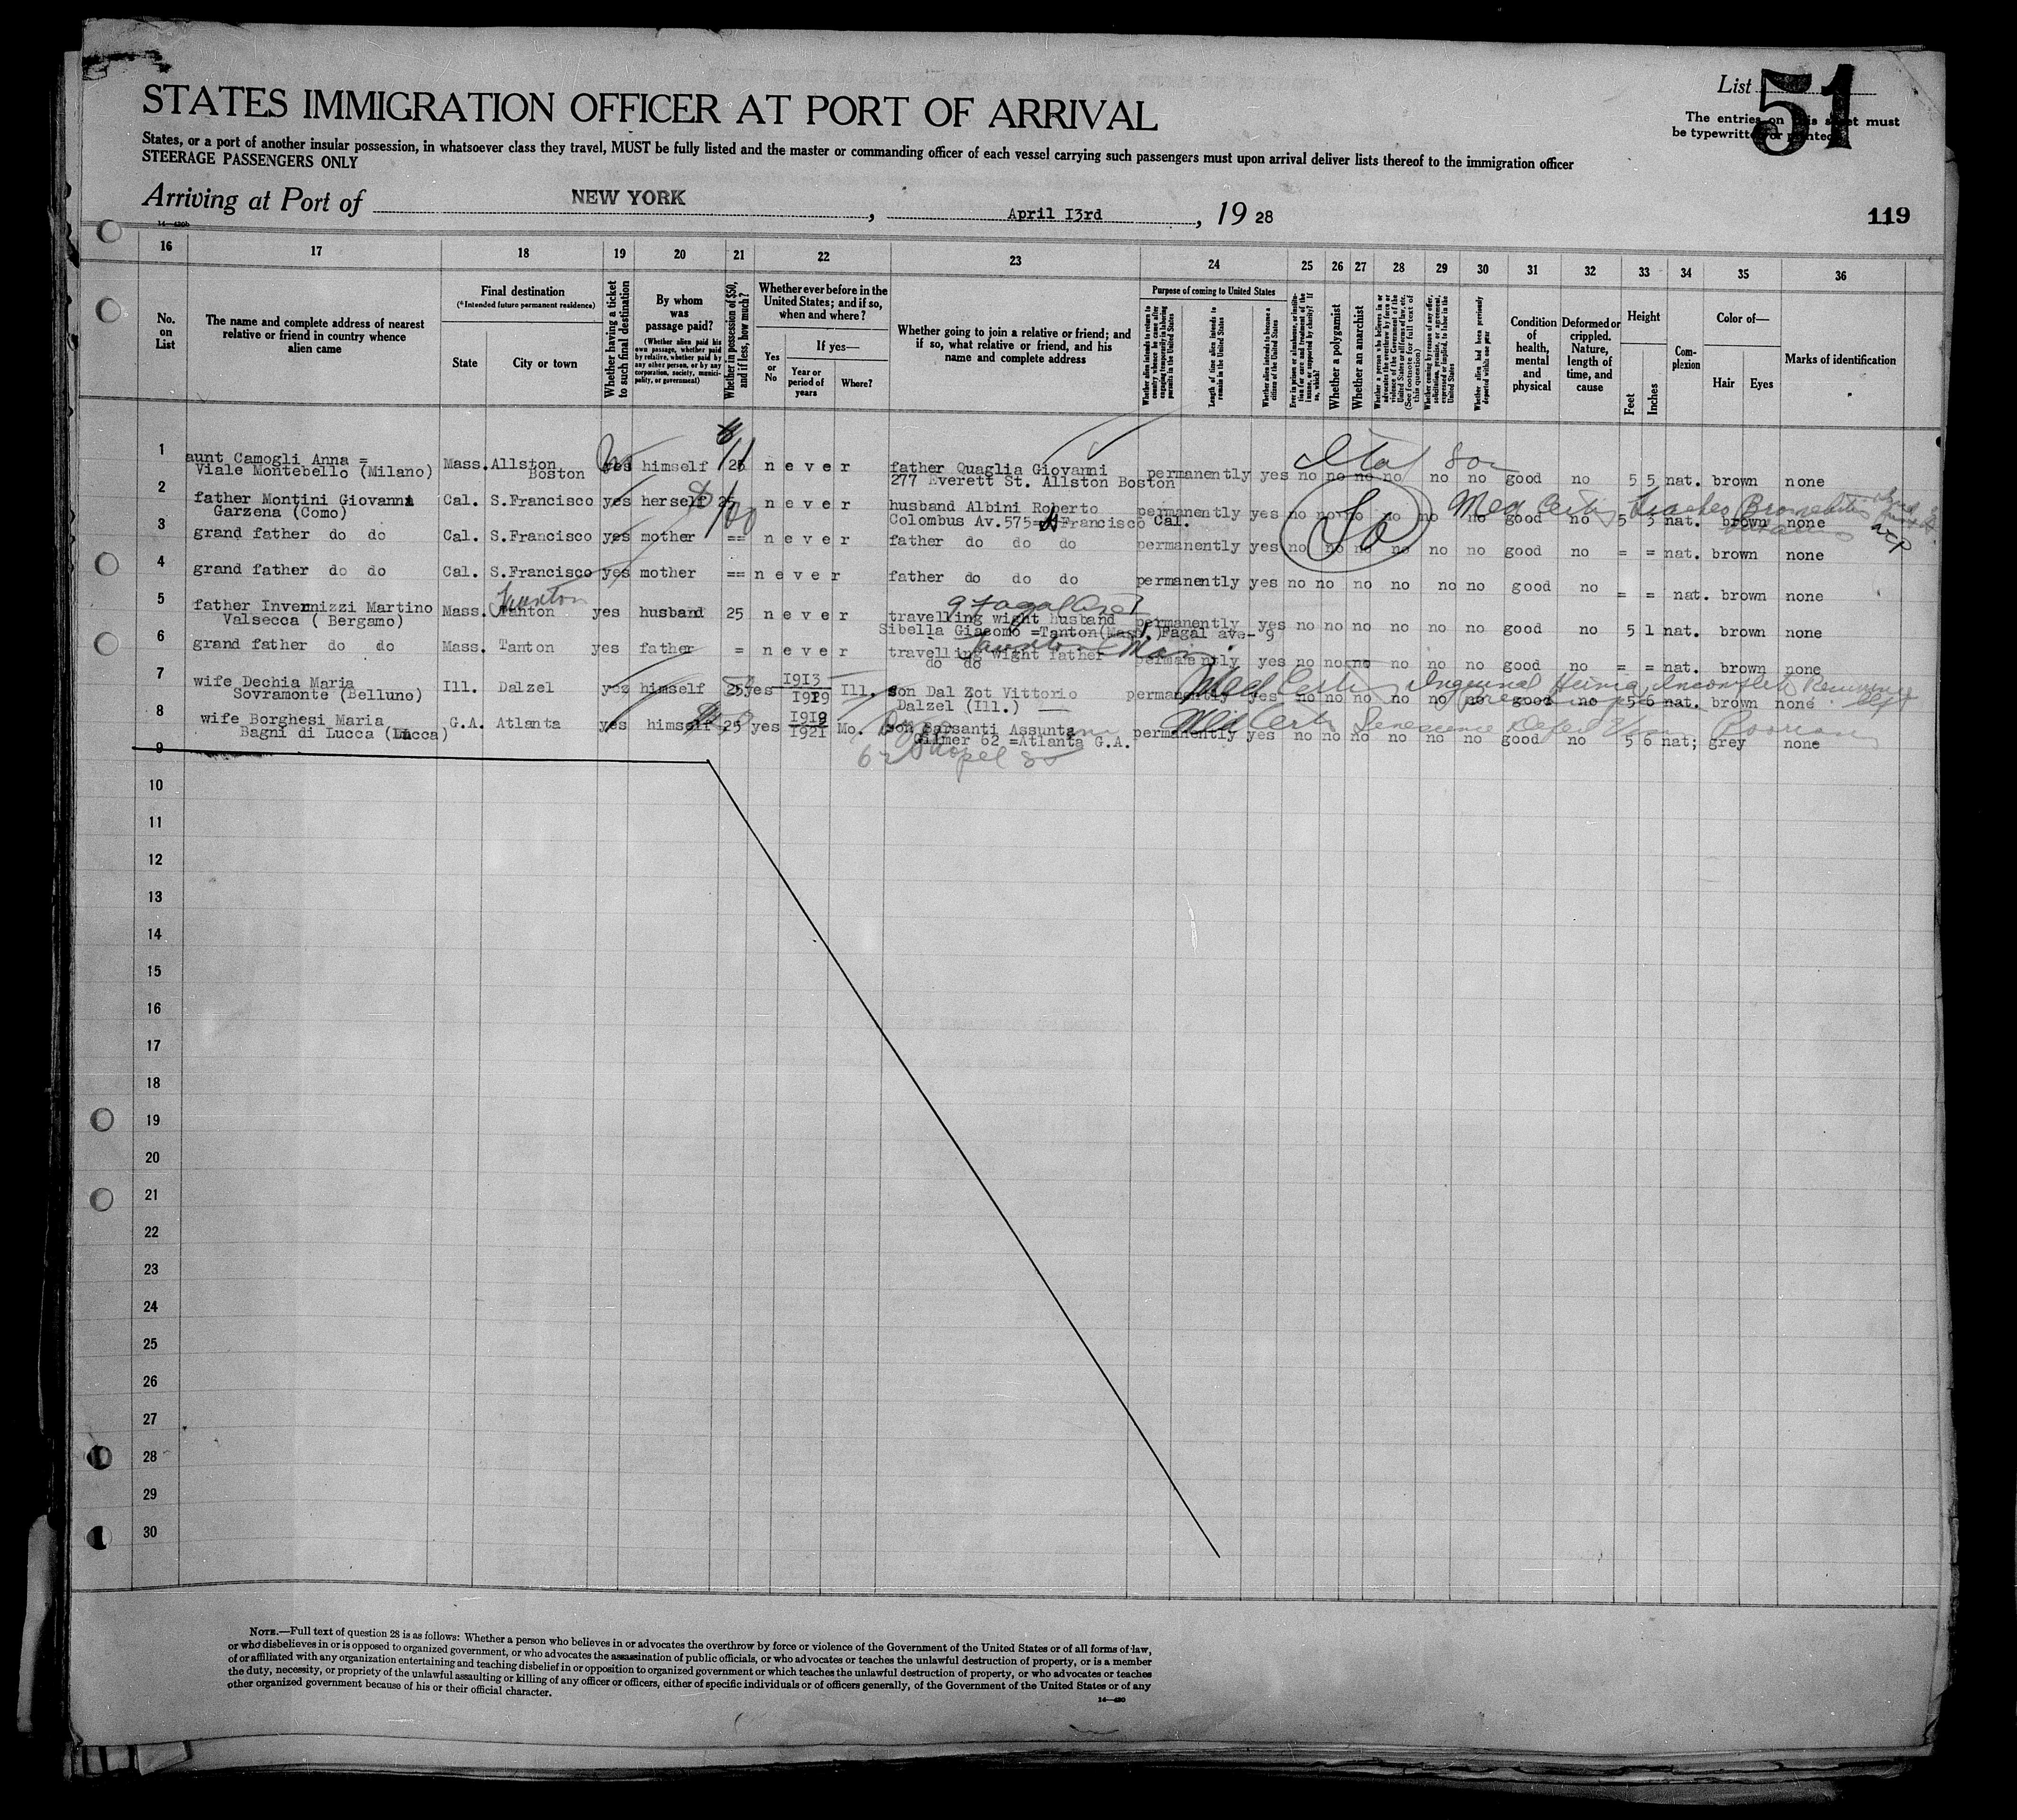 List 51
STATES IMMIGRATION OFFICER AT PORT OF ARRIVAL
The entries on this sheet must
be typewritten or printed
States, or a port of another insular possession, in whatsoever class they travel, MUST be fully listed and the master or commanding officer of each vessel carrying such passengers must upon arrival deliver lists thereof to the immigration officer
STEERAGE PASSENGERS ONLY
Arriving at Port of NEW YORK, April I3rd, 19 28
119
14—430b
16 17 18 19 20 21 22 23 24 25 26 27 28 29 30 31 32 33 34 35 36
No. on List
The name and complete address of nearest relative or friend in country whence alien came
Final destination
(*Intended future permanent residence)
State
City or town
Whether having a ticket to such final destination
By whom was passage paid?
(Whether alien paid his own passage, whether paid by relative, whether paid by any other person, or by any corporation, society, municipality, or government)
Whether in possession of $50, and if less, how much?
Whether ever before in the United States; and if so, when and where?
Yes or No
If yes—
Year or period of years
Where?
Whether going to join a relative or friend; and if so, what relative or friend, and his name and complete address
Purpose of coming to United States
Whether alien intends to return to country whence he came after engaging temporarily in laboring pursuits in the United States
Length of time alien intends to remain in the United States
Whether alien intends to become a citizen of the United States
Ever in prison or almshouse, or institution for care and treatment of the insane, or supported by charity? If so, which?
Whether a polygamist
Whether an anarchist
Whether a person who believes in or advocates the overthrow by force or violence of the Government of the United States or all forms of law, etc. (See footnote for full text of this question)
Whether coming by reason of any offer, solicitation, promise, or agreement, expressed or implied, to labor in the United States
Whether alien had been previously deported within one year
Condition of health, mental and physical
Deformed or crippled. Nature, length of time, and cause
Height
Feet
Inches
Complexion
Color of—
Hair
Eyes
Marks of identification
1 aunt Camogli Anna = Mass. Allston yes himself 25 n e v e r father Quaglia Giovanni permanently yes no no no no no no good no 5 5 nat. brown none
Viale Montebello (Milano) Boston 277 Everett St. Allston Boston
2 father Montini Giovanni Cal. S.Francisco yes herself 25 n e v e r husband Albini Roberto permanently yes no no no no no no good no 5 3 nat. brown none
Garzena (Como) Colombus Av.575= Francisco Cal.
Med Cert
3 grand father do do Cal. S.Francisco yes mother == n e v e r father do do do permanently yes no no no no no no good no = = nat. brown none
4 grand father do do Cal. S.Francisco yes mother == n e v e r father do do do permanently yes no no no no no no good no = = nat. brown none
Taunton
5 father Invernizzi Martino Mass. Tanton yes husband 25 n e v e r travelling wight husband permanently yes no no no no no no good no 5 1 nat. brown none
Valsecca ( Bergamo) Sibella Giacomo =Tanton(Mass.)Fagal ave- 9
6 grand father do do Mass. Tanton yes father = n e v e r travelling wight father permanently yes no no no no no no good no = = nat. brown none
do do
7 wife Dechia Maria Ill. Dalzel yes himself 25 yes 1913 1919 Ill. son Dal Zot Vittorio permanently yes no no no no no no good no 5 6 nat. brown none
Sovramonte (Belluno) Dalzel (Ill.)
Med Cert Inguinal Hernia, Incomplete
8 wife Borghesi Maria G.A. Atlanta yes himself 25 yes 1919 1921 Mo. son Barsanti Assunta permanently yes no no no no no no good no 5 6 nat; grey none
Bagni di Lucca (Lucca) Gilmer 62 =Atlanta G.A.
Med Cert
9
10
11
12
13
14
15
16
17
18
19
20
21
22
23
24
25
26
27
28
29
30
NOTE.—Full text of question 28 is as follows: Whether a person who believes in or advocates the overthrow by force or violence of the Government of the United States or of all forms of law,
or who disbelieves in or is opposed to organized government, or who advocates the assassination of public officials, or who advocates or teaches the unlawful destruction of property, or is a member
of or affiliated with any organization entertaining and teaching disbelief in or opposition to organized government or which teaches the unlawful destruction of property, or who advocates or teaches
the duty, necessity, or propriety of the unlawful assaulting or killing of any officer or officers, either of specific individuals or of officers generally, of the Government of the United States or of any
other organized government because of his or their official character.
14—430